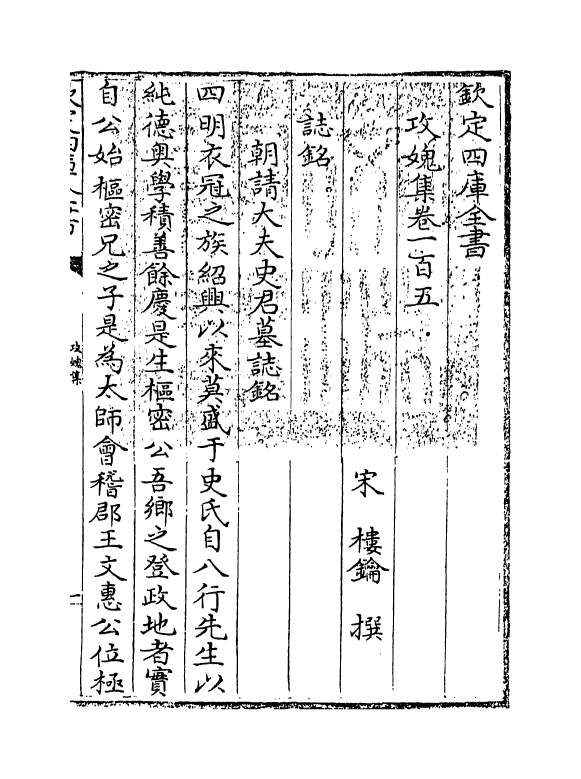 欽定四庫全書
攻媿集卷一百五
宋 樓鑰 撰
誌銘
朝請大夫史君墓誌銘
四明衣冠之族紹興以來莫盛于史氏自八行先生以
純德奥學積善餘慶是生樞密公吾鄉之登政地者實
自公始樞密兄之子是為太師會稽郡王文惠公位極
攻媿集